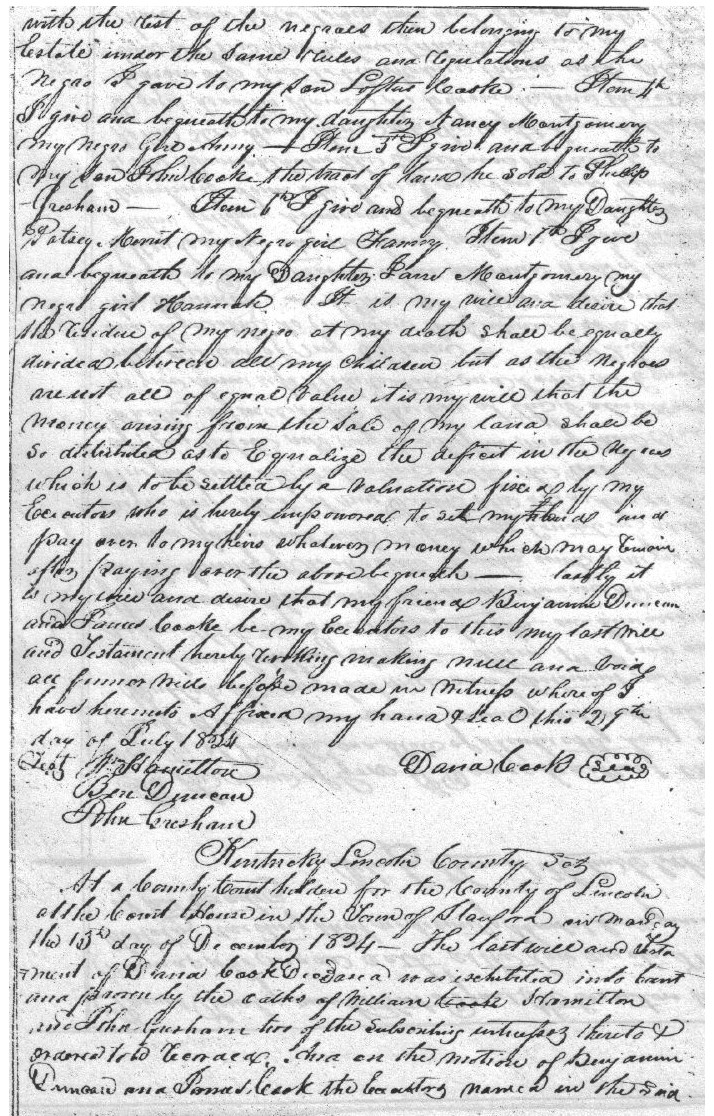 with the rest of the negroes then belonging to my
Estate under the same rules and regulations as the
Negro I gave to my son Loftus Cooke — Item 4th
I give and bequeath to my daughter Nancy Montgomery
my Negro Girl — Item 5th I give and bequeath to
my son John Cooke the tract of land he sold to Philip
Gresham — Item 6th I give and bequeath to my Daughter
Patsey my Negro girl Fanny. Item I give
and bequeath to my Daughter Jane Montgomery my
negro girl Hannah. It is my will and desire that
the residue of my negro at my death shall be equally
divided between all my Children but as the Negroes
are not all of equal value it is my will that the
money arising from the Sale of my land shall be
so distributed as to Equalize the deficit in the Negroes
which is to be settled by a valuation fixed by my
Executors who is hereby impowered to sell my lands and
pay over to my heirs whatever money which may remain
after paying over the above bequeath — lastly it
is my will and desire that my friend Benjamin Duncan
and James Cooke be my Executors to this my last Will
and Testament hereby revoking making null and void
all former wills before made in witness whereof I
have hereunto Affixed my hand & seal this 29th
day of July 1824
Test Wm Hamilton David Cook Seal
Ben Duncan
John Gresham
Kentucky Lincoln County Sct
At a County Court holden for the County of Lincoln
at the Court House in the Town of Stanford on monday
the 13th day of December 1824 — The last will and Testa
ment of David Cook Deceased was exhibited into Court
and proven by the oaths of William Cooke Hamilton
and John Gresham two of the subscribing witnesses thereto &
ordered to be Recorded. And on the motion of Benjamin
Duncan and James Cook the Executors named in the said